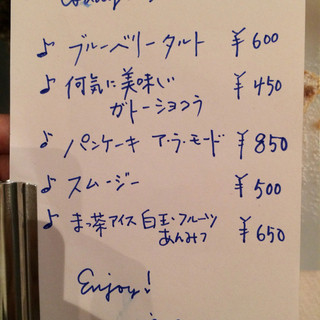 ♪ ブルーベリータルト ¥600
♪ 何気に美味しい
ガトーショコラ ¥450
♪ パンケーキ ア・ラ・モード ¥850
♪ スムージー ¥500
♪ まっ茶アイス 白玉・フルーツ
あんみつ ¥650
Enjoy!